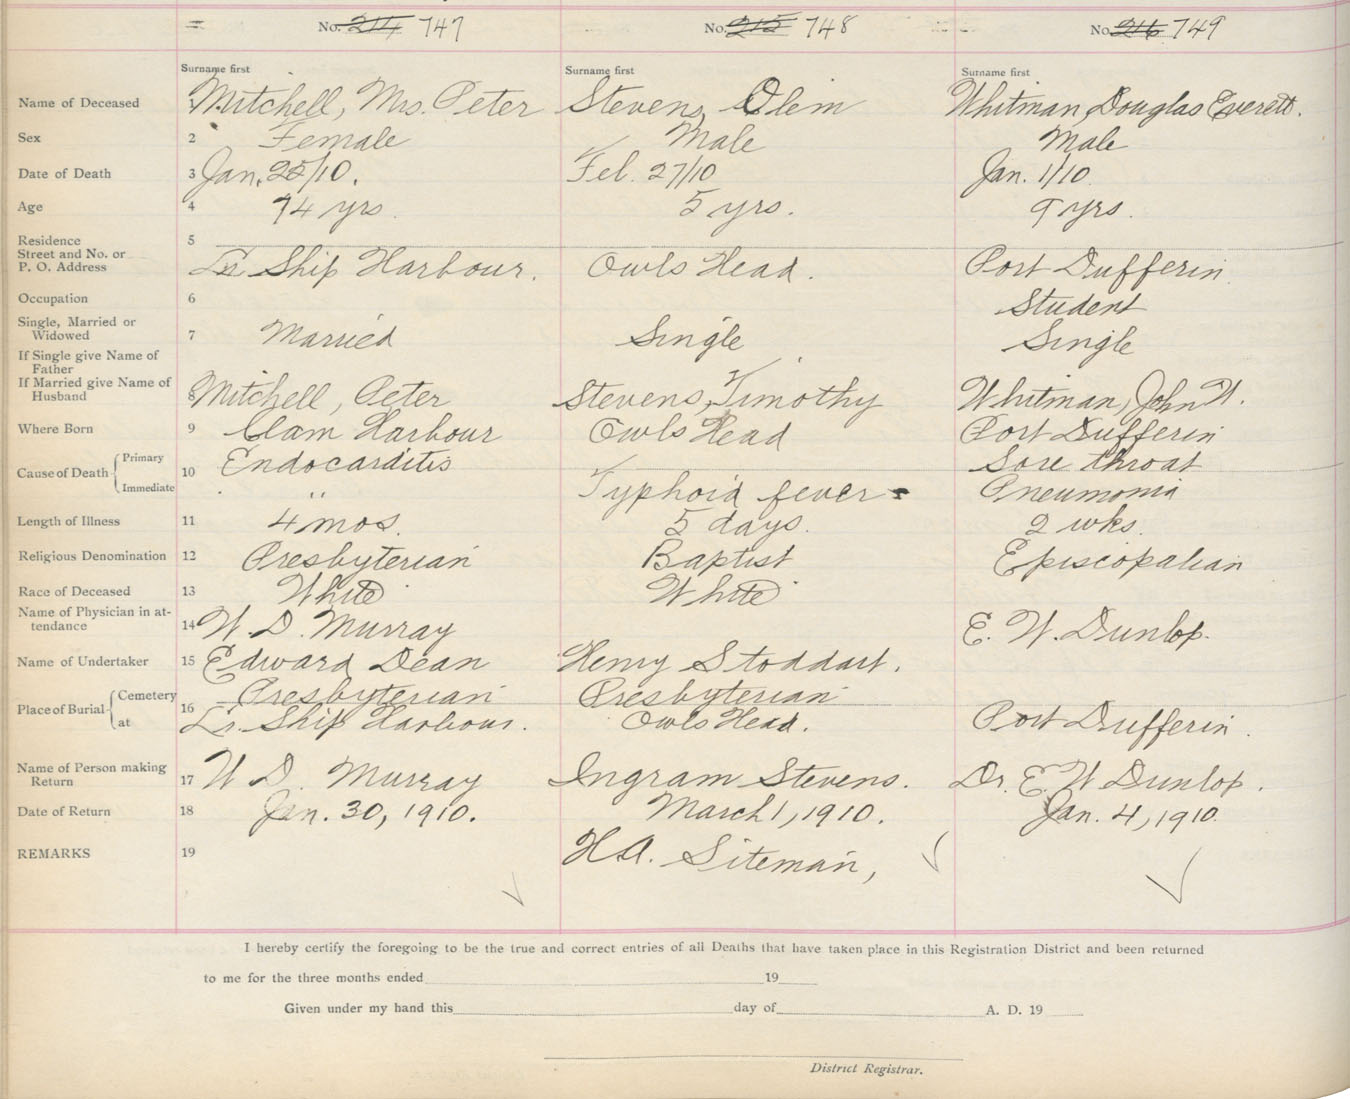 No. 214 747 No. 215 748 No. 216 749
Surname first Surname first Surname first
Name of Deceased 1 Mitchell, Mrs. Peter Stevens, Olem Whitman, Douglas Everett.
Sex 2 Female Male Male
Date of Death 3 Jan. 25/10. Feb. 27/10 Jan. 1/10
Age 4 74 yrs. 5 yrs. 9 yrs.
Residence 5
Street and No. or
P. O. Address Lr. Ship Harbour. Owls Head. Port Dufferin
Occupation 6 Student
Single, Married or
Widowed 7 Married Single Single
If Single give Name of
Father
If Married give Name of
Husband 8 Mitchell, Peter Stevens, Timothy Whitman, John W.
Where Born 9 Clam Harbour Owls Head Port Dufferin
Cause of Death Primary 10 Endocarditis Sore throat
Immediate " Typhoid fever Pneumonia
Length of Illness 11 4 mos. 5 days. 2 wks.
Religious Denomination 12 Presbyterian Baptist Episcopalian
Race of Deceased 13 White White
Name of Physician in at-
tendance 14 W. D. Murray E. W. Dunlop.
Name of Undertaker 15 Edward Dean Henry Stoddart.
Place of Burial Cemetery 16 Presbyterian Presbyterian
at Lr. Ship Harbour. Owls Head. Port Dufferin.
Name of Person making
Return 17 W. D. Murray Ingram Stevens. Dr. E. W. Dunlop.
Date of Return 18 Jan. 30, 1910. March 1, 1910. Jan. 4, 1910.
REMARKS 19 H.A. Siteman,
I hereby certify the foregoing to be the true and correct entries of all Deaths that have taken place in this Registration District and been returned
to me for the three months ended 19
Given under my hand this day of A. D. 19
District Registrar.